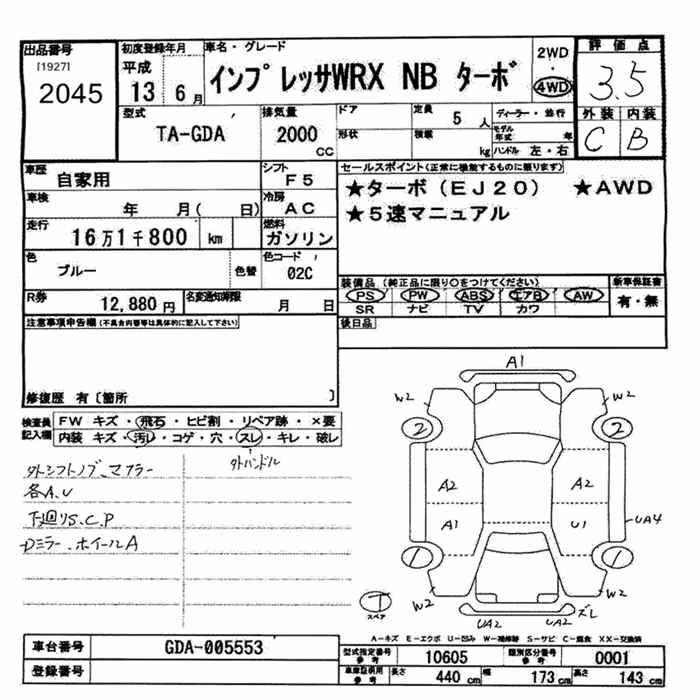 出品番号 初度登録年月 車名・グレード 2WD・4WD 評価点
[1927] 2045 平成 13 6月 インプレッサWRX NB ターボ 3.5
型式 TA-GDA 排気量 2000 CC ドア 形状 定員 5人 積載 kg ディーラー・並行 モデル年式 年 ハンドル 左・右 外装 C 内装 B
車歴 自家用 シフト F5 セールスポイント(正常に機能するものに限ります)
車検 年 月( 日) 冷房 AC ★ターボ(EJ20) ★AWD
走行 16万1千800 km 燃料 ガソリン ★5速マニュアル
色 ブルー 色替 色コード 02C
装備品(純正品に限り○をつけてください) 新車保証書
R券 12,880円 名変通知期限 月 日 PS PW ABS エアB AW 有・無
SR ナビ TV カワ
注意事項申告欄(不具合内容等は具体的に記入して下さい) 後日品
修復歴 有〔箇所 〕
検査員記入欄 FW キズ・飛石・ヒビ割・リペア跡・×要
内装 キズ・汚れ・コゲ・穴・スレ・キレ・破レ
外シフトノブ、マフラー 外ハンドル
各A.U
下廻りS.C.P
Dミラー、ホイールA
A1
W2 W2
2 2
A2 A2
A1 U1 UA4
1 1
W2 W2
T スペア UA2 UA2 ズレ
A－キズ E－エクボ U－凹み W－補修跡 S－サビ C－腐食 XX－交換済
車台番号 GDA-005553 型式指定番号 参考 10605 類別区分番号 参考 0001
登録番号 車庫証明用 参考 長さ 440 cm 幅 173 cm 高さ 143 cm